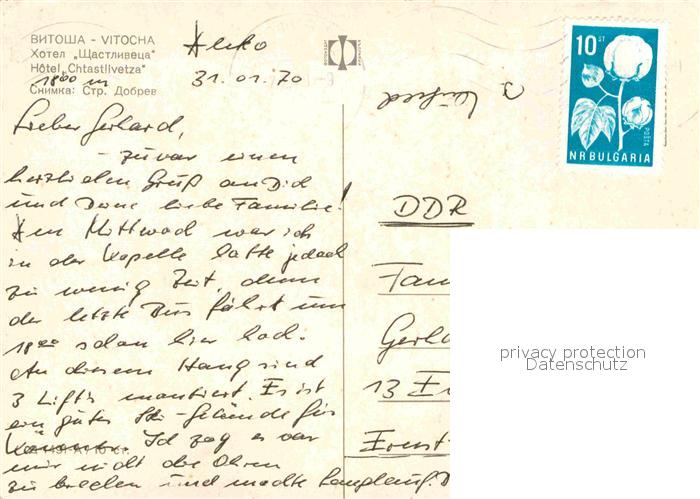 ВИТОША - VITOCHA
Хотел „Щастливеца"
Hôtel „Chtastlivetza"
1800 m
Снимка: Стр. Добрев
Aleko
31.01.70
10 СТ
POŠTA
N R BULGARIA
Lieber Gerhard,
- zuvor einen
herzlichen Gruß an Dich
und Deine liebe Familie!
Am Mittwoch war ich
in der Kapelle hatte jedoch
zu wenig Zeit, denn
der letzte Bus fährt um
18.00 schon hier hoch.
An diesem Hang sind
3 Lift's montiert. Es ist
ein gutes Ski-Gelände für
Ich zog es vor
mir nicht die Ohren
zu brechen und machte Langlauf. D
DDR
Fam
Gerh
13
Ernst
privacy protection
Datenschutz